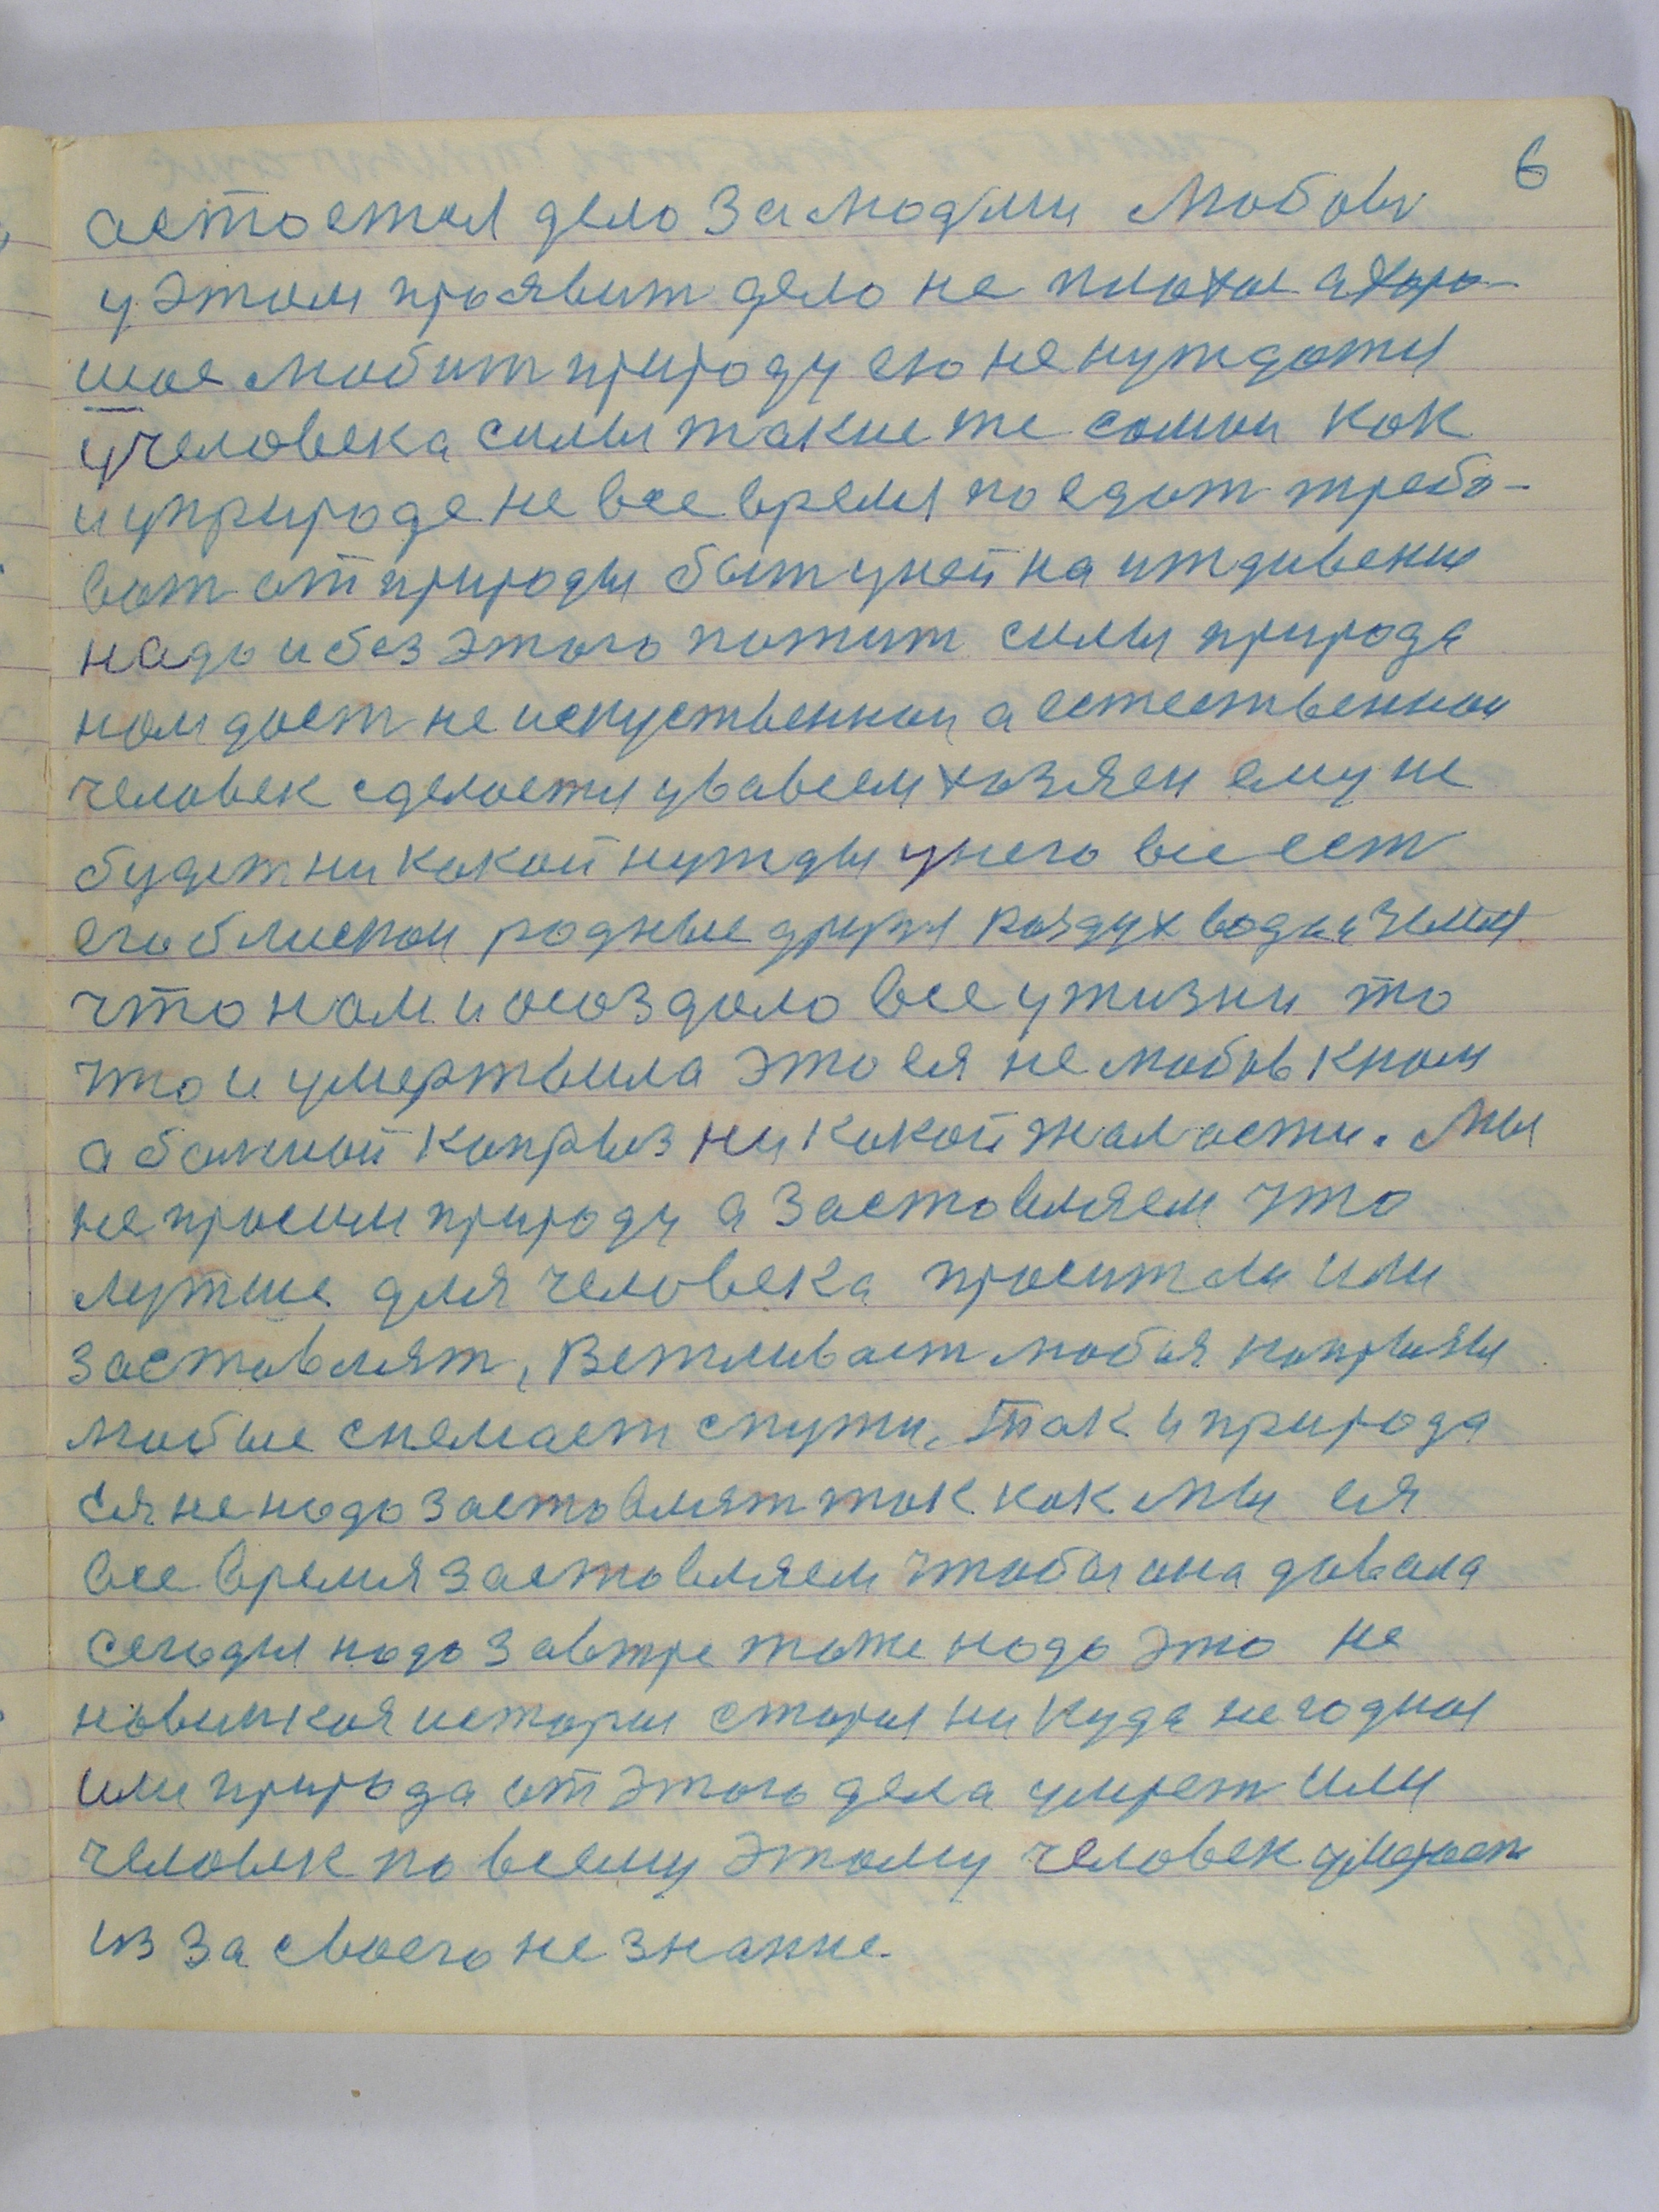 6
астостся дело за людями любов
у этом проявит дело не плохое а хоро-
шое любит природу ею не нуждатся
у человека силы такие же самои как
и уприроде не все время поедат требо-
ват от природы быт уней на иждивении
надо и без этого пожит силы природа
нам дает не искуственнои а естественнои
человек сделается уво всем хозяен ему не
будет ни какой нужды у него все ест
его блискои родные друзя воздух вода и земля
что нам и осоздало все у жизни то
что и умертвила это ея не любов к нам
а бальной капрыз ни какой жалости. Мы
не просим природу а заставляем что
лутше для человека просит ли или
заставлят, Вежливаст любоя капрызы
любые снемает с пути. Так и природа
ея не надо заставлят так как мы ея
все время заставляем чтобы она давала
сегодня надо завтре тоже надо это не
новинкоя история старая ни куда не годноя
или природа от этого дела умрет или
человек по всему этому человек умерает
из за своего не знание.